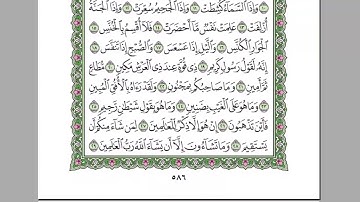 وَإِذَا السَّمَاءُ كُشِطَتْ ١١ وَإِذَا الْجَحِيمُ سُعِّرَتْ ١٢ وَإِذَا الْجَنَّةُ
أُزْلِفَتْ ١٣ عَلِمَتْ نَفْسٌ مَّا أَحْضَرَتْ ١٤ فَلَا أُقْسِمُ بِالْخُنَّسِ ١٥
الْجَوَارِ الْكُنَّسِ ١٦ وَاللَّيْلِ إِذَا عَسْعَسَ ١٧ وَالصُّبْحِ إِذَا تَنَفَّسَ ١٨
إِنَّهُ لَقَوْلُ رَسُولٍ كَرِيمٍ ١٩ ذِي قُوَّةٍ عِندَ ذِي الْعَرْشِ مَكِينٍ ٢٠ مُّطَاعٍ
ثَمَّ أَمِينٍ ٢١ وَمَا صَاحِبُكُم بِمَجْنُونٍ ٢٢ وَلَقَدْ رَآهُ بِالْأُفُقِ الْمُبِينِ
٢٣ وَمَا هُوَ عَلَى الْغَيْبِ بِضَنِينٍ ٢٤ وَمَا هُوَ بِقَوْلِ شَيْطَانٍ رَّجِيمٍ ٢٥
فَأَيْنَ تَذْهَبُونَ ٢٦ إِنْ هُوَ إِلَّا ذِكْرٌ لِّلْعَالَمِينَ ٢٧ لِمَن شَاءَ مِنكُمْ أَن
يَسْتَقِيمَ ٢٨ وَمَا تَشَاءُونَ إِلَّا أَن يَشَاءَ اللَّهُ رَبُّ الْعَالَمِينَ ٢٩
٥٨٦